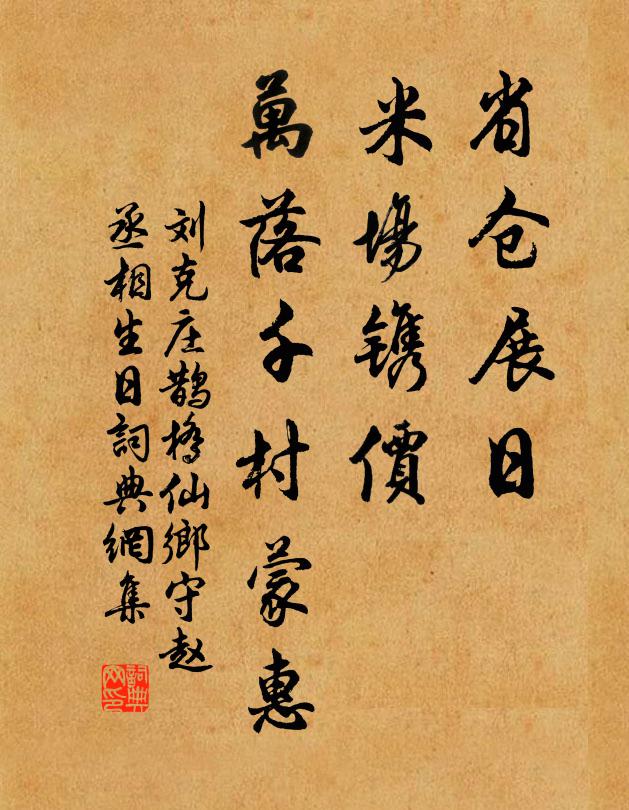 省仓展日
米場镌價
萬落千村蒙惠
刘克庄鹊橋仙鄉守赵
丞相生日詞典網集
詞典网印